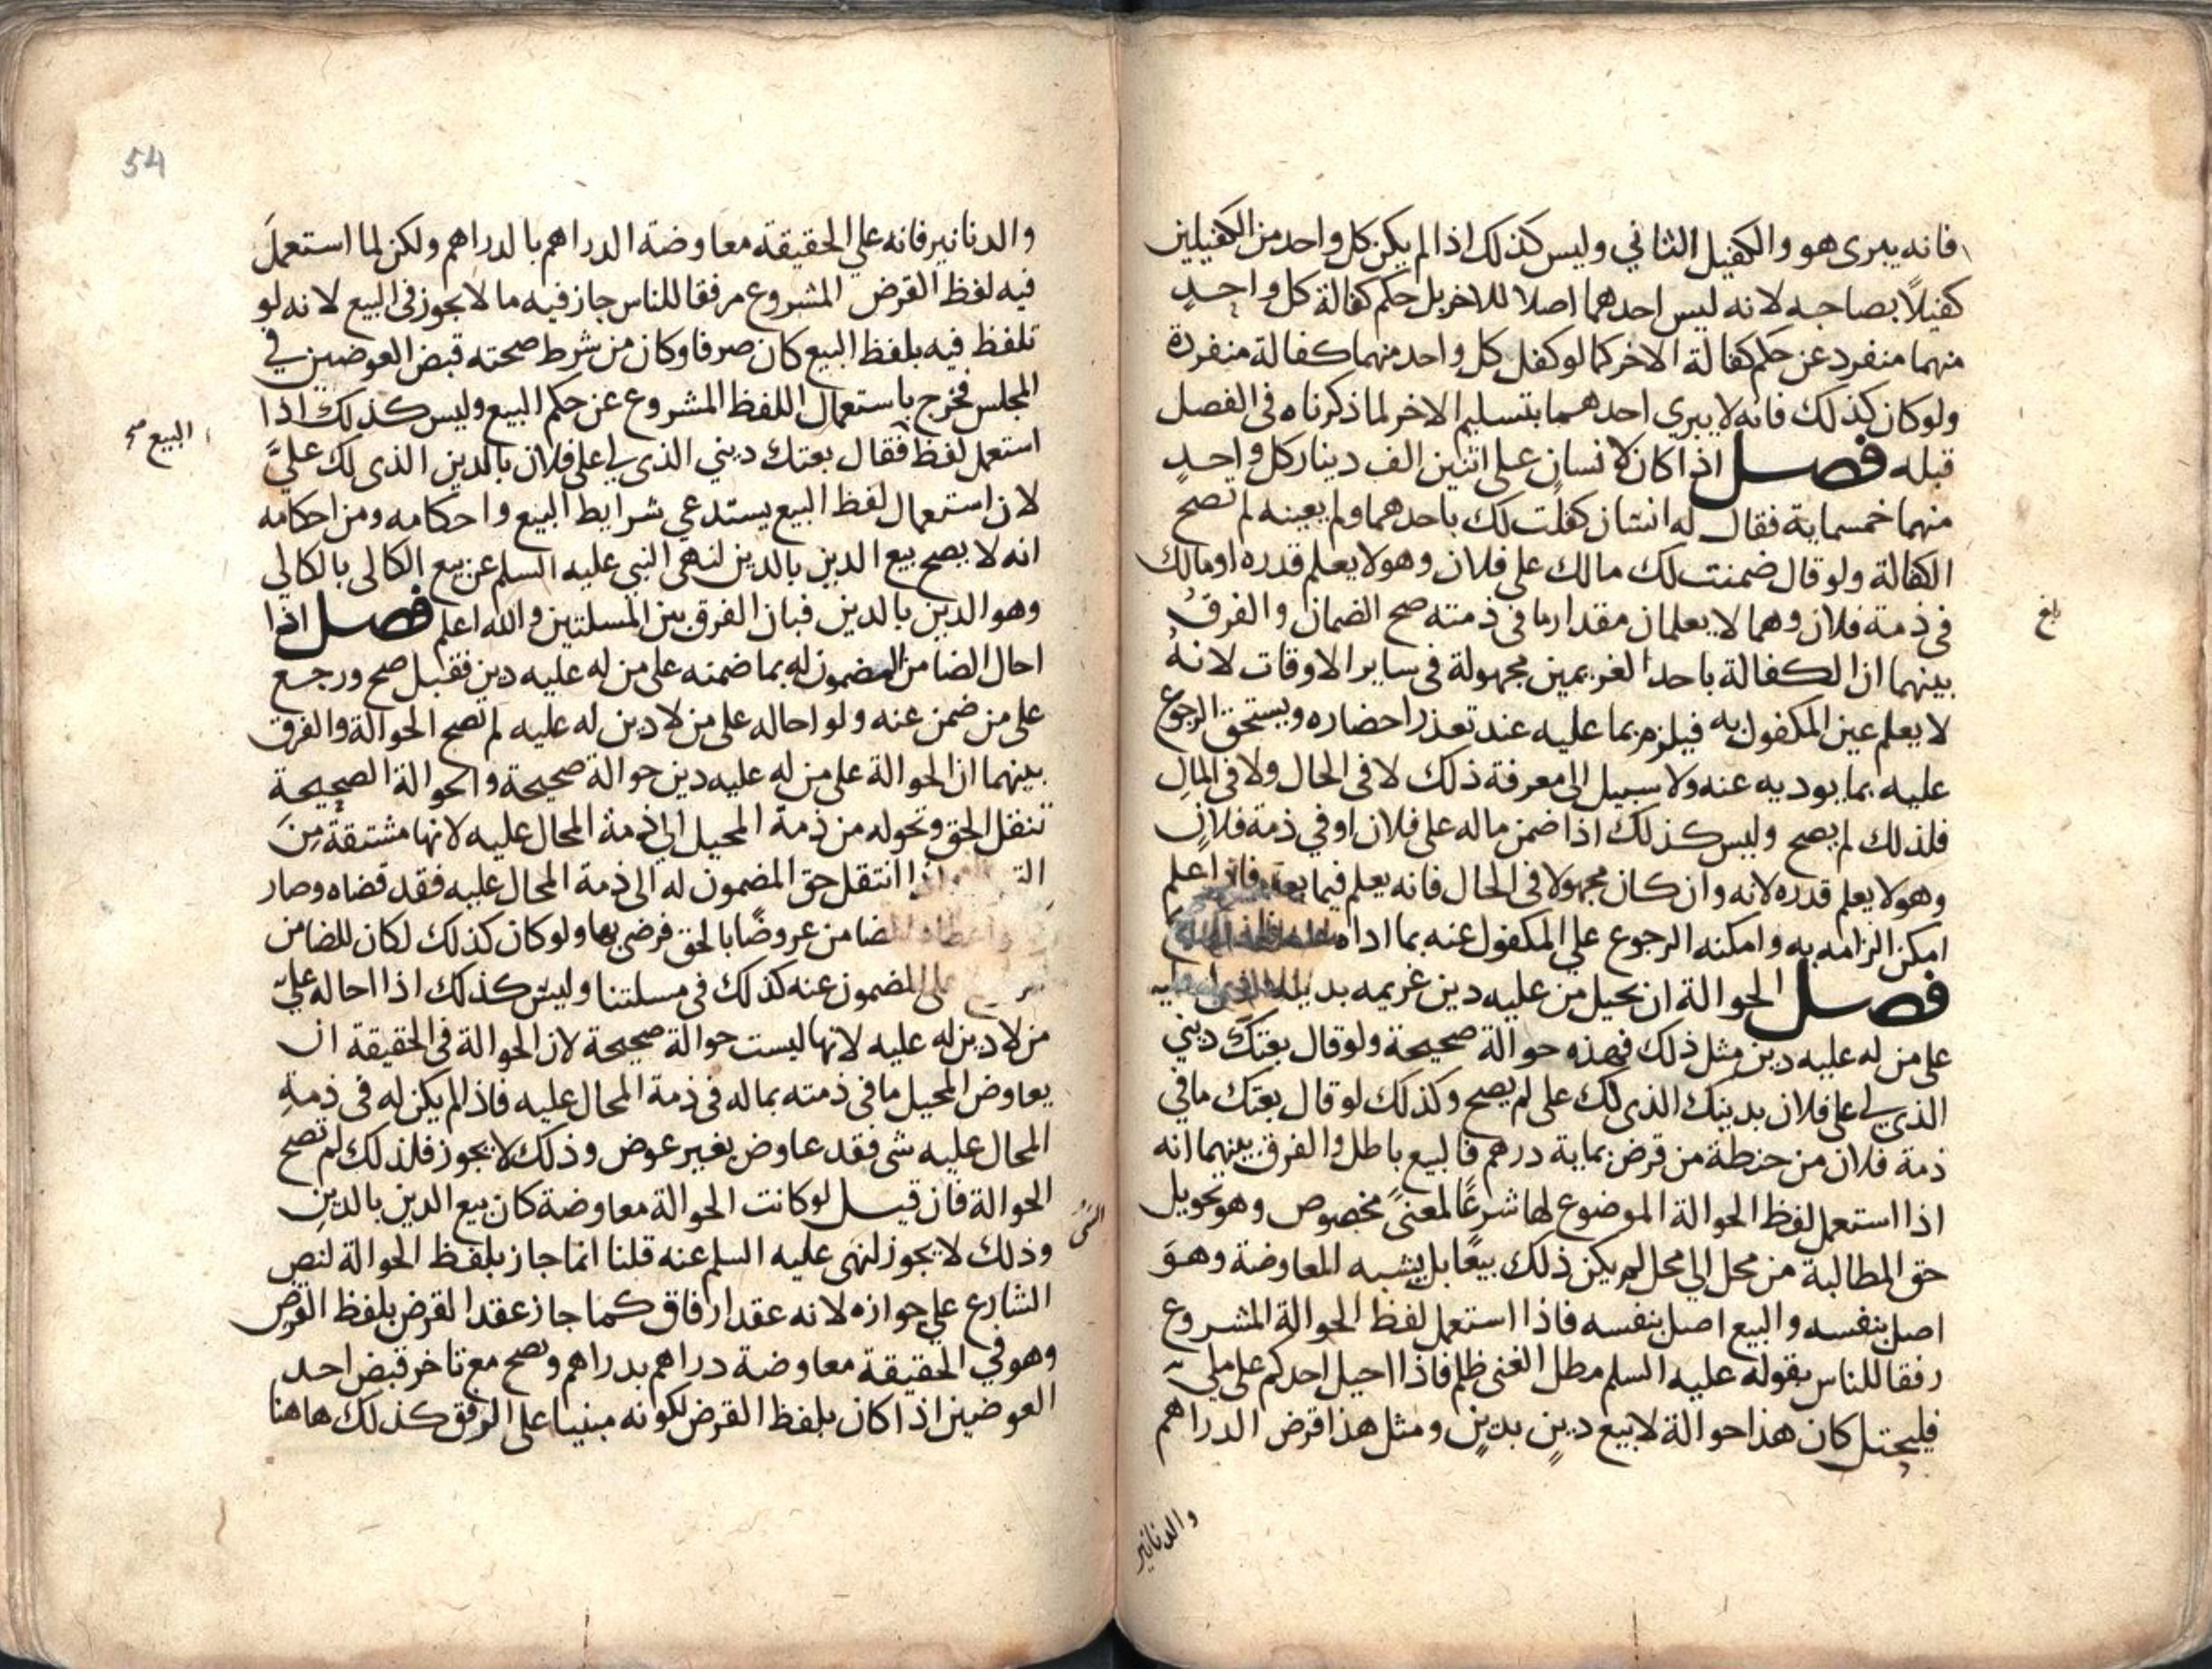 فانه يبرى هو والكفيل الثاني وليس كذلك اذا لم يكن كل واحد من الكفيلين
كفيلاً بصاحبه لانه ليس احدهما اصلا للاخر بل حكم كفالة كل واحدٍ
منهما منفرد عن حكم كفالة الاخر كما لو كفل كل واحد منهما كفالة منفردة
ولو كان كذلك فانه لا يبري احدهما بتسليم الاخر لما ذكرناه في الفصل
قبله فصل اذا كان لانسان على اثنين الف دينار كل واحدٍ
منهما خمسماية فقال له انسان كفلت لك باحدهما ولم يعينه لم تصح
الكفالة ولو قال ضمنت لك مالك على فلان وهو لا يعلم قدره او مالك
في ذمة فلان وهما لا يعلمان مقدار ما في ذمته صح الضمان والفرقُ
بلغ
بينهما ان الكفالة باحد الغريمين مجهولة في ساير الاوقات لانهُ
لا يعلم عين المكفول به فيلزم بما عليه عند تعذر احضاره ويستحق الرجوع
عليه بما يوديه عنه ولا سبيل الى معرفة ذلك لا في الحال ولا في المالِ
فلذلك لم يصح وليس كذلك اذا ضمن ماله على فلان او في ذمة فلانٍ
وهو لا يعلم قدره لانه وان كان مجهولا في الحال فانه يعلم فيما بعد فاذا علم
امكن الزامه به وامكنه الرجوع على المكفول عنه بما اداه
فصل الحوالة ان يحيل من عليه دين غريمه بدينه
على من له عليه دين مثل ذلك فهذه حوالة صحيحة ولو قال بعتك ديني
الذي لي على فلان بدينك الذى لك على لم يصح وكذلك لو قال بعتك ما في
ذمة فلان من حنطة من قرض بماية درهم فالبيع باطل والفرق بينهما انه
اذا استعمل لفظ الحوالة الموضوع لها شرعًا لمعنىً مخصوص وهو تحويل
حق المطالبة من محل الى محل لم يكن ذلك بيعًا بل يشبه المعاوضة وهوَ
اصل بنفسه والبيع اصل بنفسه فاذا استعمل لفظ الحوالة المشروع
رفقا للناس بقوله عليه السلم مطل الغنى ظلم فاذا احيل احدكم على ملي
فليحتل كان هذا حوالة لا بيع دينٍ بدينٍ ومثل هذا قرض الدراهم
والدنانير
54
والدنانير فانه على الحقيقة معاوضة الدراهم بالدراهم ولكن لما استعملَ
فيه لفظ القرض المشروع مرفقا للناس جاز فيه ما لا يجوز في البيع لانه لو
تلفظ فيه بلفظ البيع كان صرفا وكان من شرط صحته قبض العوضين في
المجلس فخرج باستعمال اللفظ المشروع عن حكم البيع وليس كذلك اذا
البيع صح
استعمل لفظ فقال بعتك ديني الذى لي على فلان بالدين الذى لك عليَّ
لان استعمال لفظ البيع يستدعي شرايط البيع واحكامه ومن احكامه
انه لا يصح بيع الدين بالدين لنهي النبي عليه السلم عن بيع الكالى بالكالي
وهو الدين بالدين فبان الفرق بين المسلتين والله اعلم فصل اذا
احال الضامن المضمون له بما ضمنه على من له عليه دين فقبل صح ورجع
على من ضمن عنه ولو احاله على من لا دين له عليه لم تصح الحوالة والفرق
بينهما ان الحوالة على من له عليه دين حوالة صحيحة والحوالة الصحيحة
تنقل الحق وتحوله من ذمة المحيل الى ذمة المحال عليه لانها مشتقة مِنَ
واذا انتقل حق المضمون له الى ذمة المحال عليه فقد قضاه وصار
الضامن عروضًا بالحق فرضى بها ولو كان كذلك لكان للضامن
على المضمون عنه كذلك في مسلتنا وليس كذلك اذا احاله على
من لا دين له عليه لانها ليست حوالة صحيحة لان الحوالة في الحقيقة ان
يعاوض المحيل ما في ذمته بماله في ذمة المحال عليه فاذا لم يكن له في ذمةِ
المحال عليه شى فقد عاوض بغير عوض وذلك لا يجوز فلذلك لم تصح
الحوالة فان قيل لو كانت الحوالة معاوضة كان بيع الدين بالدينِ
وذلك لا يجوز لنهى عليه السلم عنه قلنا انما جاز بلفظ الحوالة لنص
النبي
الشارع علي جوازه لانه عقد ارفاق كما جاز عقد القرض بلفظ القرض
وهو في الحقيقة معاوضة دراهم بدراهم وتصح مع تاخر قبض احد
العوضين اذا كان بلفظ القرض لكونه مبنيا على الرفق كذلك هاهنا